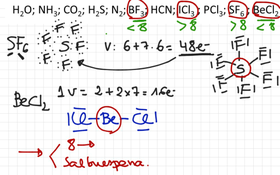 H₂O; NH₃; CO₂; H₂S; N₂; BF₃; HCN; ICl₃; PCl₃; SF₆; BeCl₂
<8 >8 >8 <8
SF₆ F F F S F F F V: 6+7·6 = 48e⁻
F F F S F F F
BeCl₂ 1V = 2+2x7 = 16e⁻
|Cl–Be–Cl|
→ 8 →
Salbuespena.